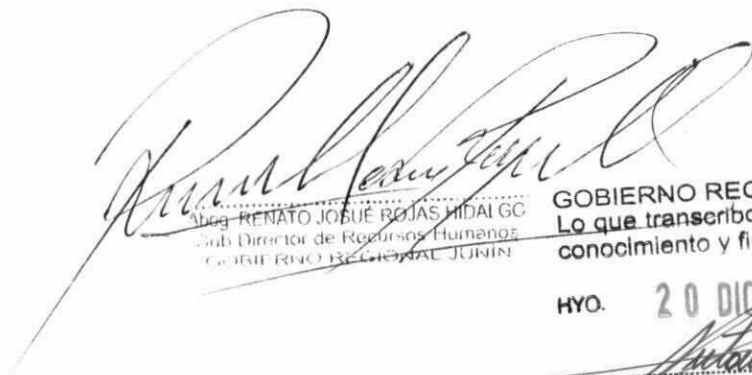 Abog. RENATO JOSUÉ ROJAS HIDALGO
Sub Director de Recursos Humanos
GOBIERNO REGIONAL JUNÍN
GOBIERNO REG
Lo que transcribo
conocimiento y fi
HYO. 20 DIC